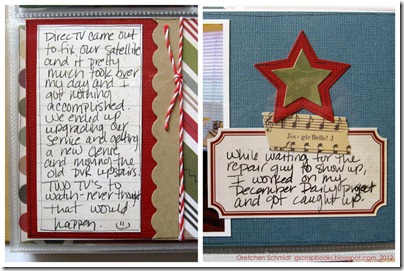 DirecTV came out
to fix our satellite
and it pretty
much took over
my day and I
got nothing
accomplished.
We ended up
upgrading our
service and getting
a new Genie
and moving the
old DVR upstairs.
TWO TV's to
watch - never thought
that would
happen.
Jingle Bells!
While waiting for the
repair guy to show up,
I worked on my
December Daily project
and got caught up.
Gretchen Schmidt gscrapbooks.blogspot.com, 2012